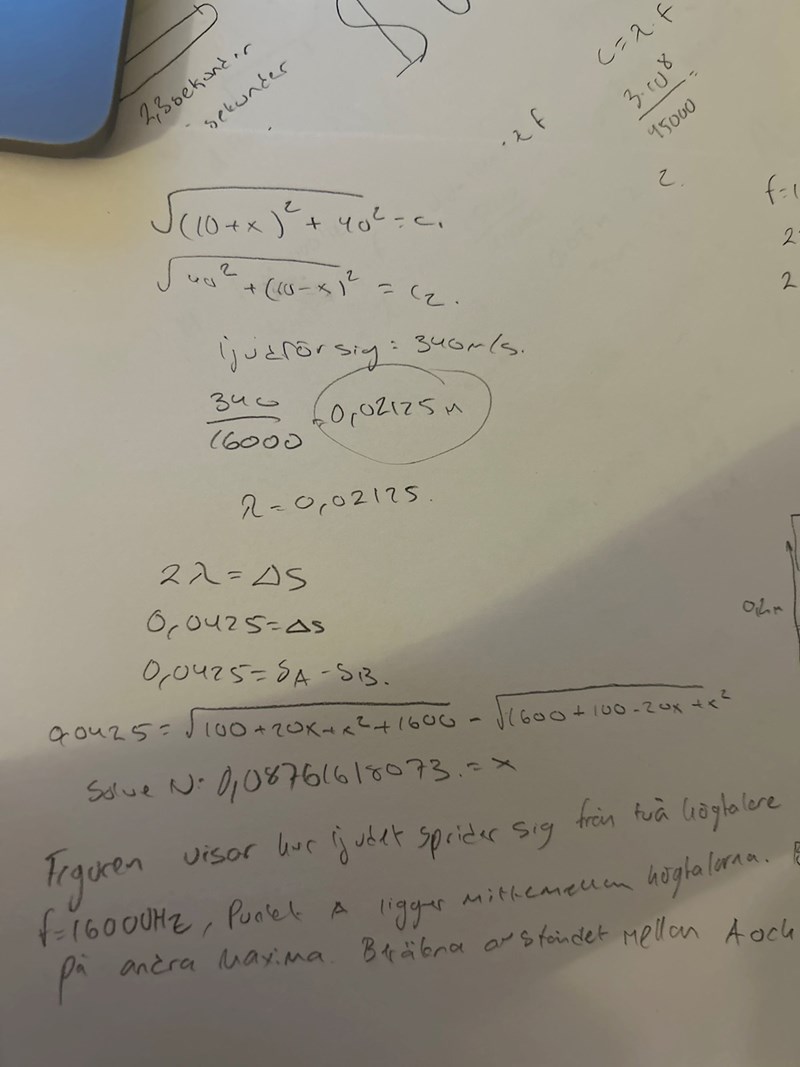 2,3 sekunder
sekunder
c = λ·f
3·10⁸/15000 =
·λf
2.
f=1
2
2
√((10+x)² + 40²) = c₁
√(40² + (10-x)²) = c₂.
ljudför sig: 340 m/s.
340/16000 = 0,02125 m
λ = 0,02125.
2λ = ΔS
0,0425 = Δs
0,0425 = SA - SB.
0,0425 = √(100+20x+x²+1600) - √(1600+100-20x+x²)
Solve N: 0,08761618073. = x
Figuren visar hur ljudet sprider sig från två högtalere
f=16000Hz, Punkt A ligger mittemellan högtalarna.
på andra maxima. Beräkna avståndet mellan A och